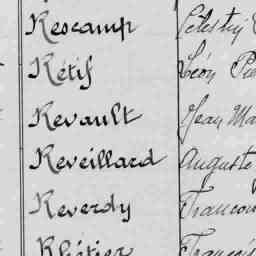 Rescamp Célestin
Rétif Léon Pie
Revault Jean Ma
Réveillard Auguste
Reverdy Francois
Rhétier François